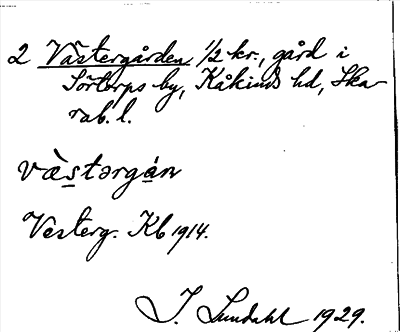 2 Västergården, 1/2 kr., gård i
Sörtorps by, Kåkinds hd, Ska-
rab. l.
väst​ərgán
Vesterg. Kb 1914.
I. Lundahl 1929.